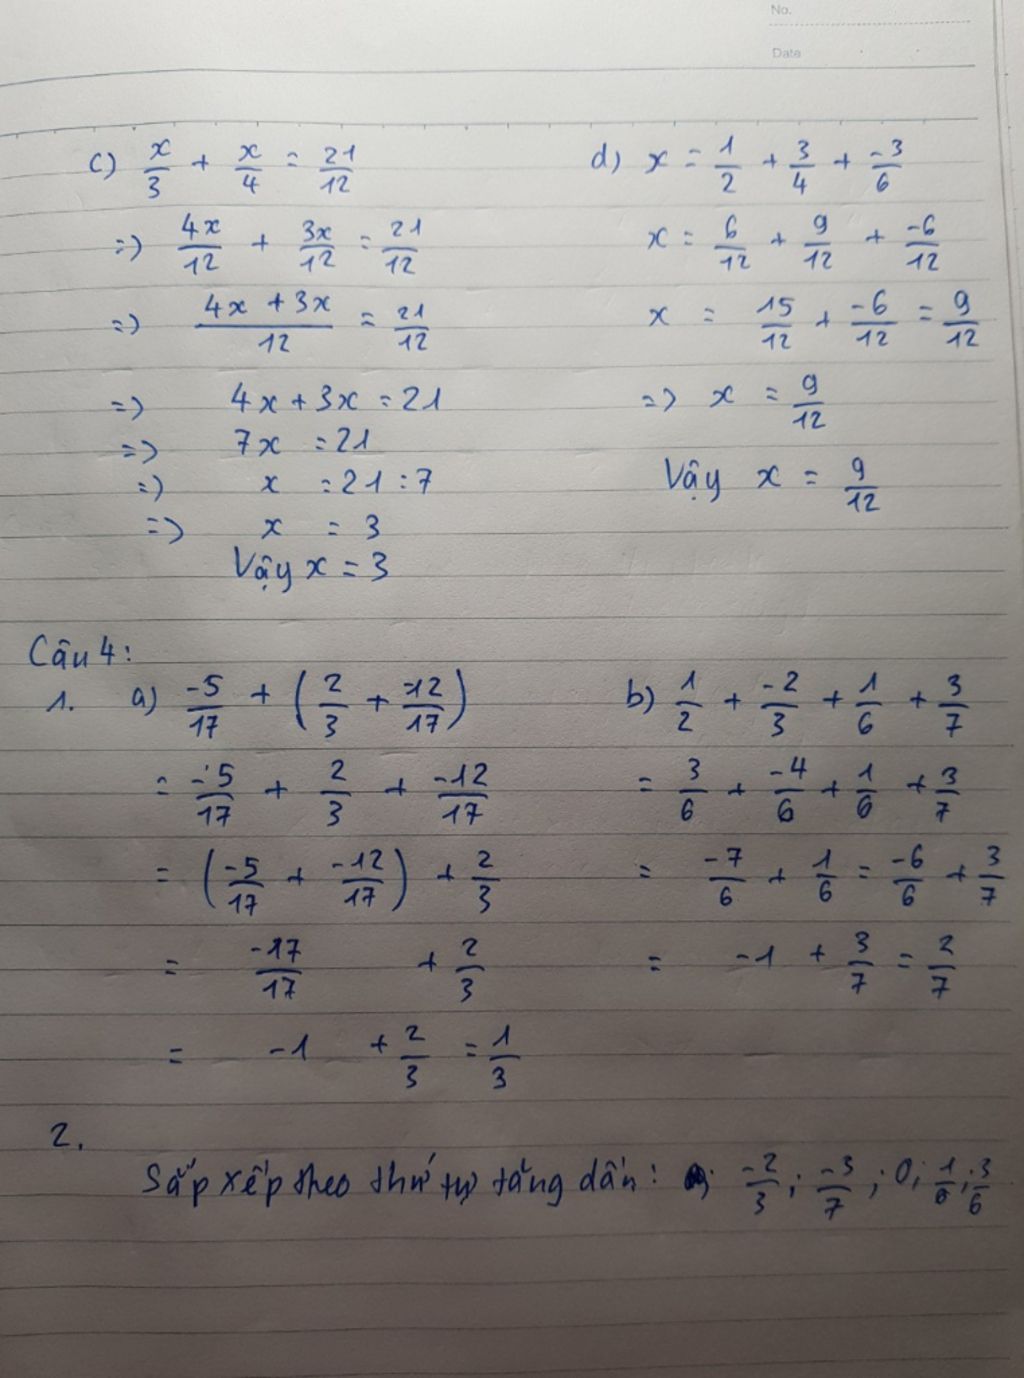 No.
Date
c) x/3 + x/4 = 21/12
=> 4x/12 + 3x/12 = 21/12
=> (4x + 3x)/12 = 21/12
=> 4x + 3x = 21
=> 7x = 21
=> x = 21 : 7
=> x = 3
Vậy x = 3
d) x = 1/2 + 3/4 + -3/6
x = 6/12 + 9/12 + -6/12
x = 15/12 + -6/12 = 9/12
=> x = 9/12
Vậy x = 9/12
Câu 4:
1. a) -5/17 + (2/3 + -12/17)
= -5/17 + 2/3 + -12/17
= (-5/17 + -12/17) + 2/3
= -17/17 + 2/3
= -1 + 2/3 = 1/3
b) 1/2 + -2/3 + 1/6 + 3/7
= 3/6 + -4/6 + 1/6 + 3/7
= -7/6 + 1/6 = -6/6 + 3/7
= -1 + 3/7 = 2/7
2.
Sắp xếp theo thứ tự tăng dần: -2/3; -3/7; 0; 1/6; 3/6